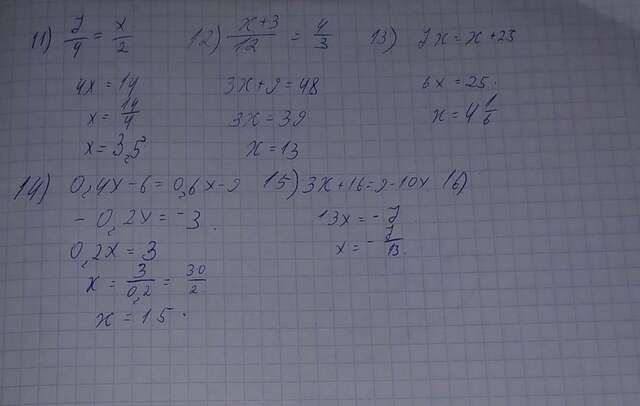 11) 7/4 = x/2 12) x+3/12 = 4/3 13) 7x = x+25
4x = 14 3x+9 = 48 6x = 25.
x = 14/4 3x = 39 x = 4 1/6
x = 3,5 x = 13
14) 0,4x-6 = 0,6x-9 15) 3x+16 = 9-10x 16)
- 0,2x = -3. 13x = -7
0,2x = 3 x = - 7/13.
x = 3/0,2 = 30/2
x = 15.